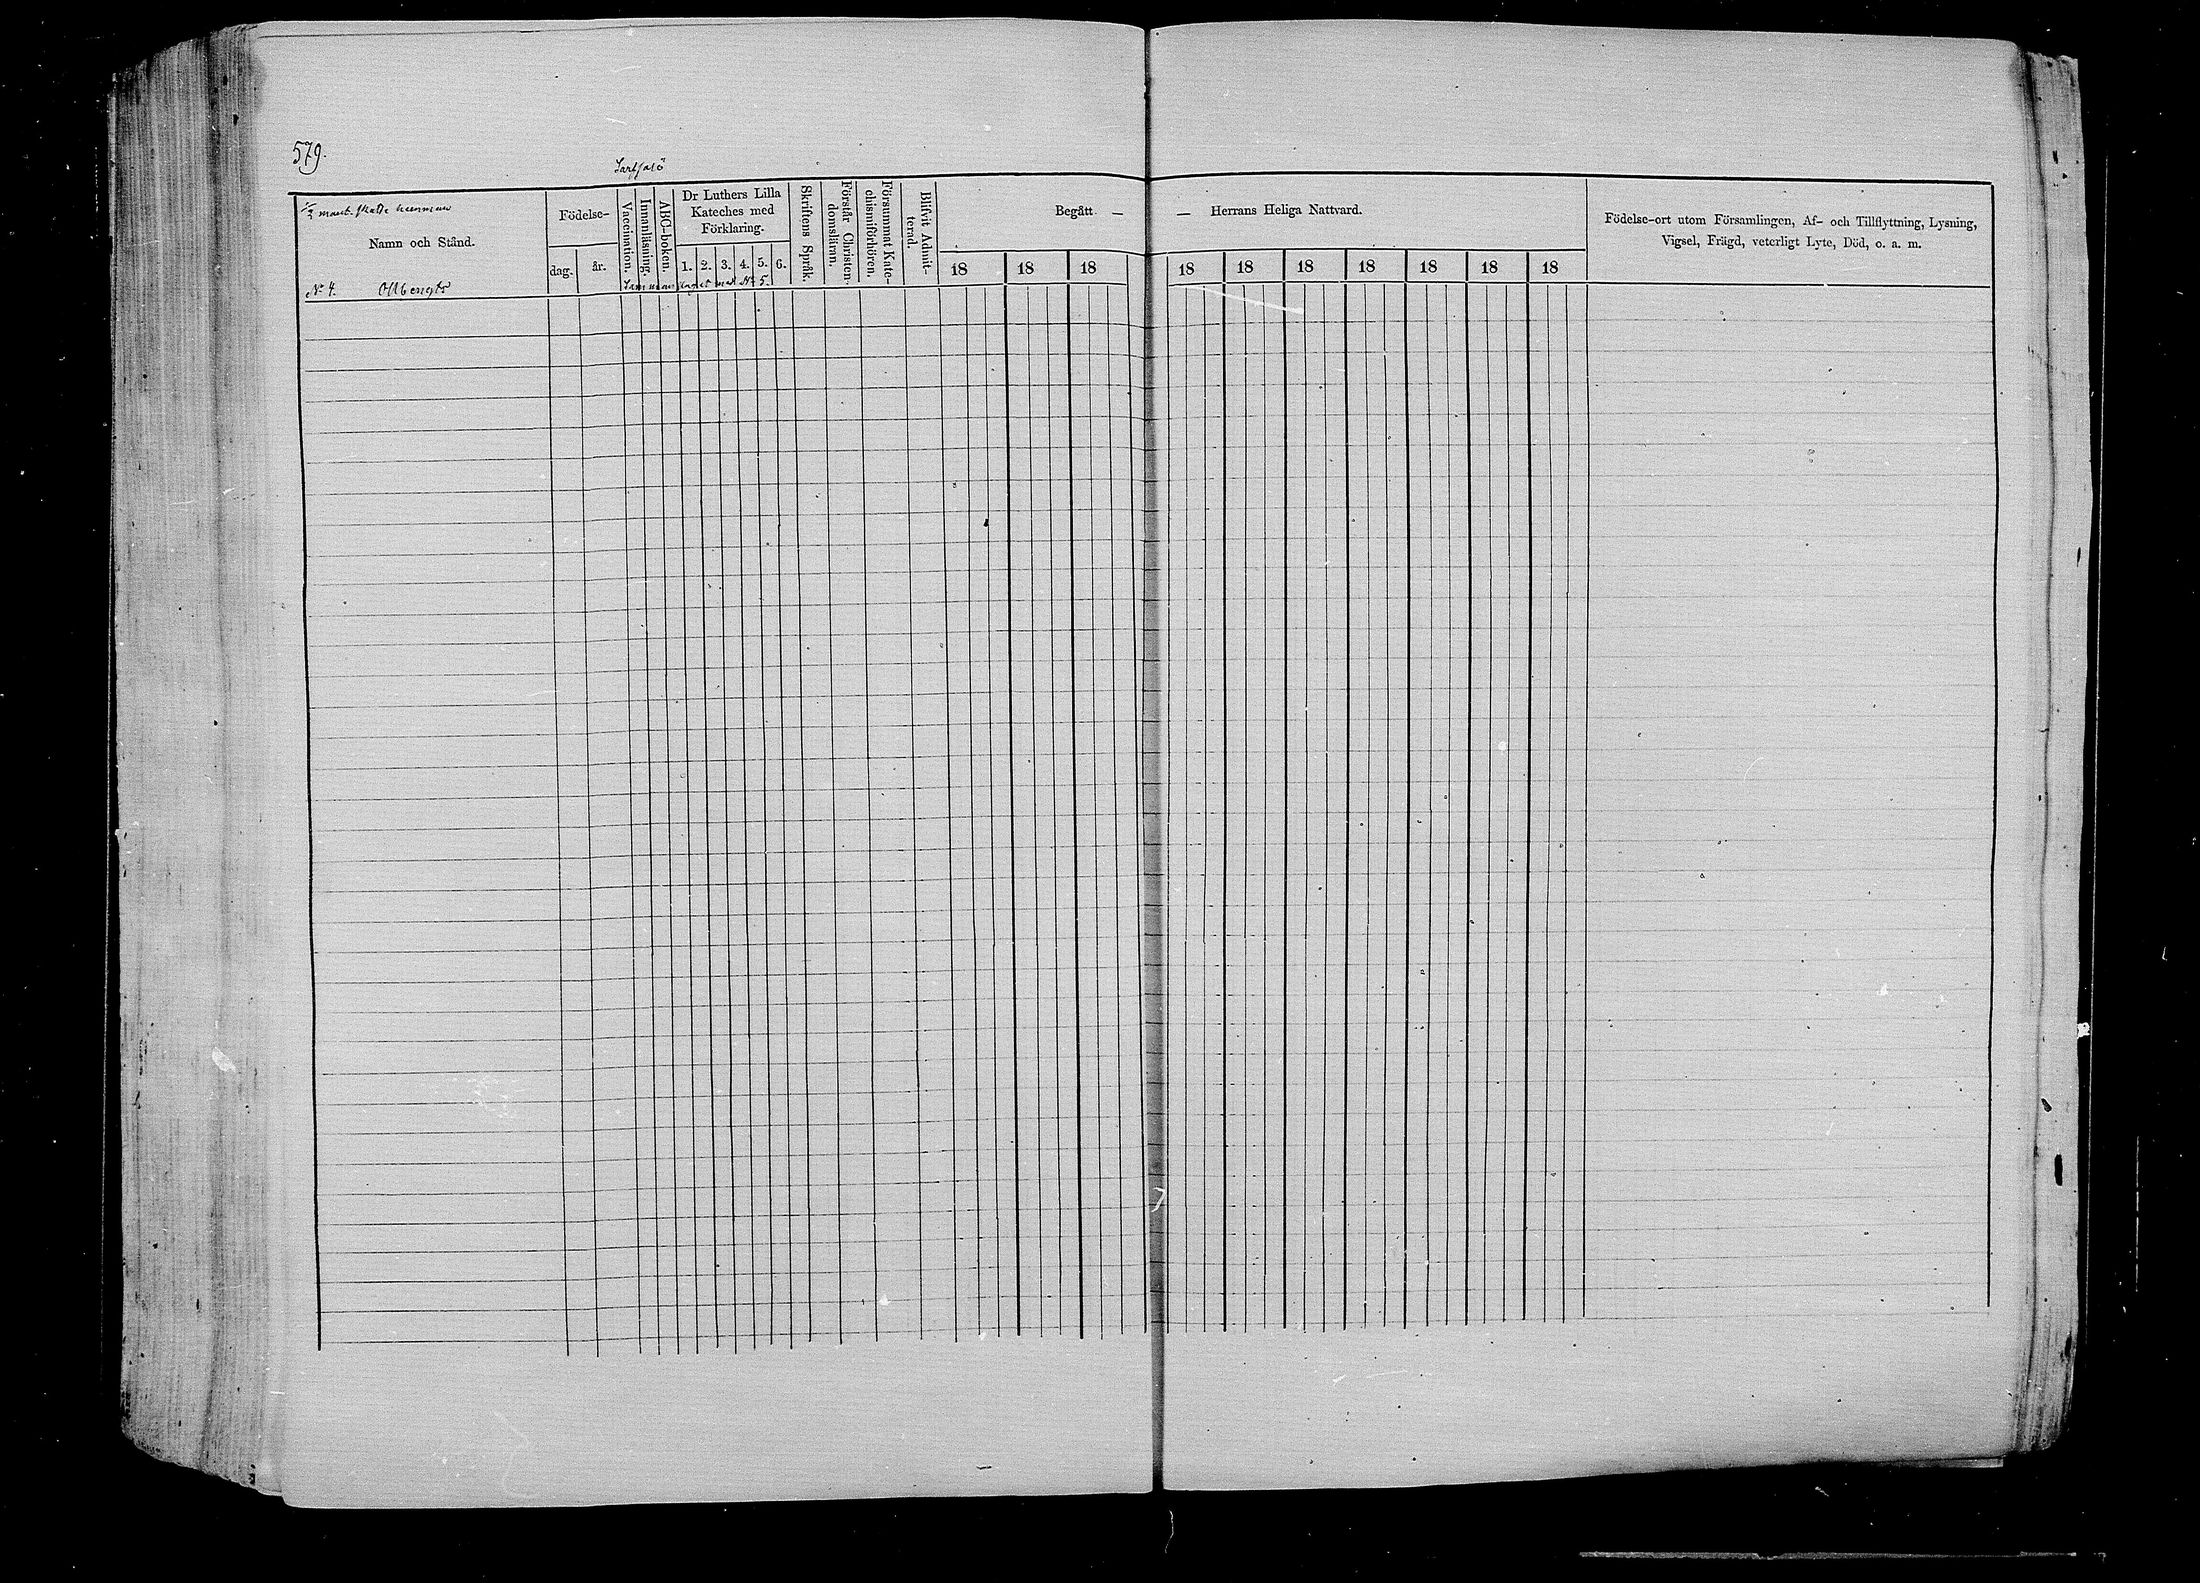 579.
mant. skatte hemman
Namn och Stånd.
Födelse-
dag. år.
Vaccination.
Innanläsning.
ABC-boken.
Dr Luthers Lilla
Kateches med
Förklaring.
1. 2. 3. 4. 5. 6.
Skriftens Språk.
Förstår Christen-
domsläran.
Försummat Kate-
chismiförhören.
Blifvit Admit-
terad.
Begått — — Herrans Heliga Nattvard.
18 18 18 18 18 18 18 18 18 18
Födelse-ort utom Församlingen, Af- och Tillflyttning, Lysning,
Vigsel, Frägd, veterligt Lyte, Död, o. a. m.
No 4. Ollbengts Sammanslaget med No 5.